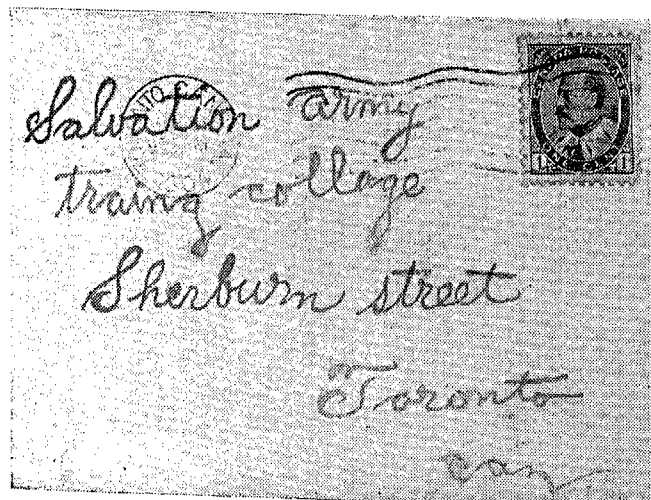 Salvation army
traing collage
Sherburn street
Toronto
can
1 1